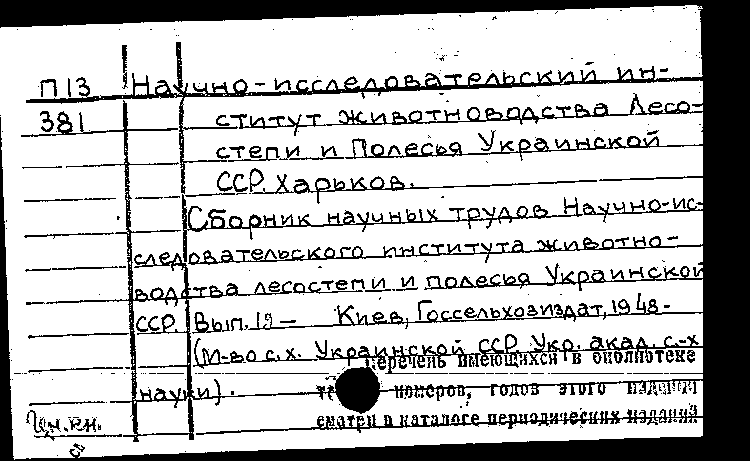 П13 Научно-исследовательский ин-
381 ститут животноводства Лесо-
степи и Полесья Украинской
ССР. Харьков.
Сборник научных трудов Научно-ис-
следовательского института животно-
водства лесостепи и полесья Украинской
ССР. Вып. 19 – Киев, Госсельхозиздат, 1948-
(М-во с.х. Украинской ССР. Укр. акад. с.-х
перечень имеющихся в библиотеке
науки).
номеров, годов этого издания
смотри в каталоге периодических изданий